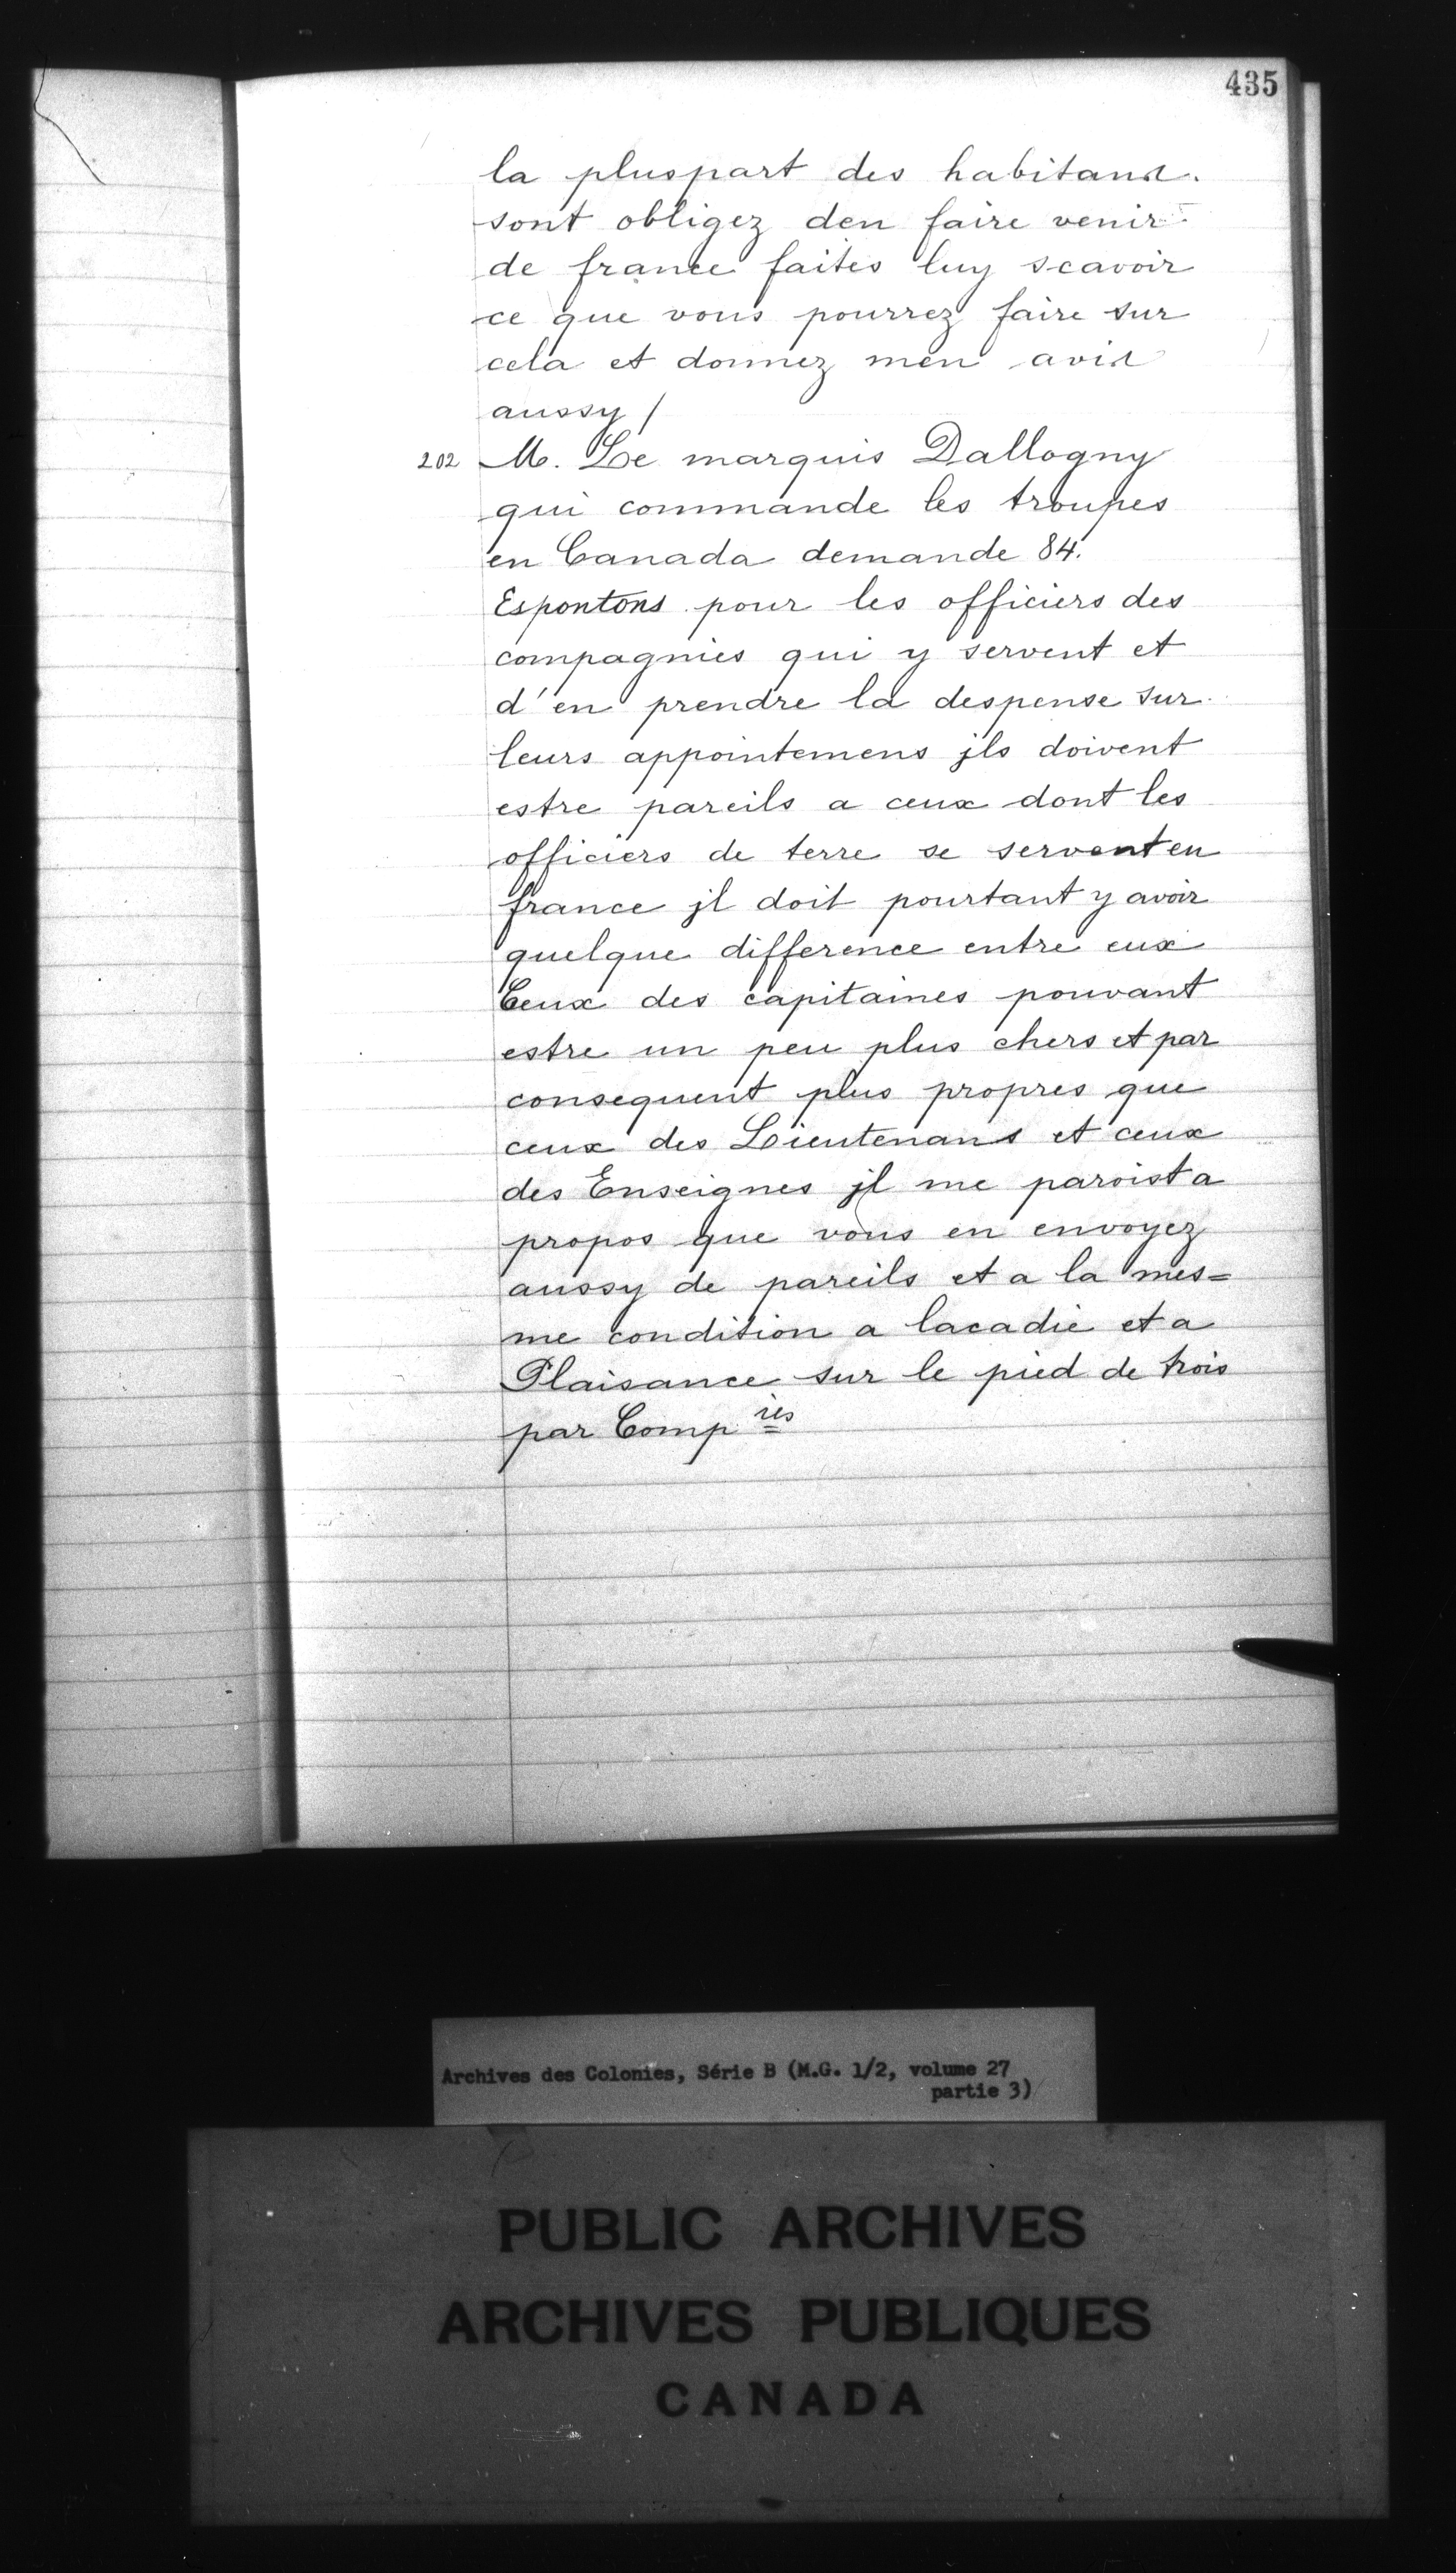 435
la pluspart des habitans.
sont obligez den faire venir
de france faites luy scavoir
ce que vous pourrez faire sur
cela et donnez men avis
aussy /
202 M. Le marquis Dallogny
qui commande les troupes
en Canada demande 84.
Espontons pour les officiers des
compagnies qui y servent et
d'en prendre la despense sur
leurs appointemens jls doivent
estre pareils a ceux dont les
officiers de terre se servent en
france jl doit pourtant y avoir
quelque difference entre eux
Ceux des capitaines pouvant
estre un peu plus chers et par
consequent plus propres que
ceux des Lieutenans et ceux
des Enseignes jl me paroist a
propos que vous en envoyez
aussy de pareils et a la mes=
me condition a lacadie et a
Plaisance sur le pied de trois
par Comp ies
Archives des Colonies, Série B (M.G. 1/2, volume 27
partie 3)
PUBLIC ARCHIVES
ARCHIVES PUBLIQUES
CANADA